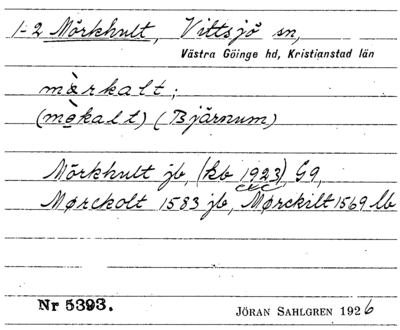 1-2 Mörkhult, Vittsjö sn,
Västra Göinge hd, Kristianstad län
mὰrkalt;
(mὲkalt) (Bjärnum)
Mörkhult jb, (kb 1923), G9,
Mørckolt 1583 jb, Mørckilt 1569 lb
Nr 5393.
JÖRAN SAHLGREN 1926